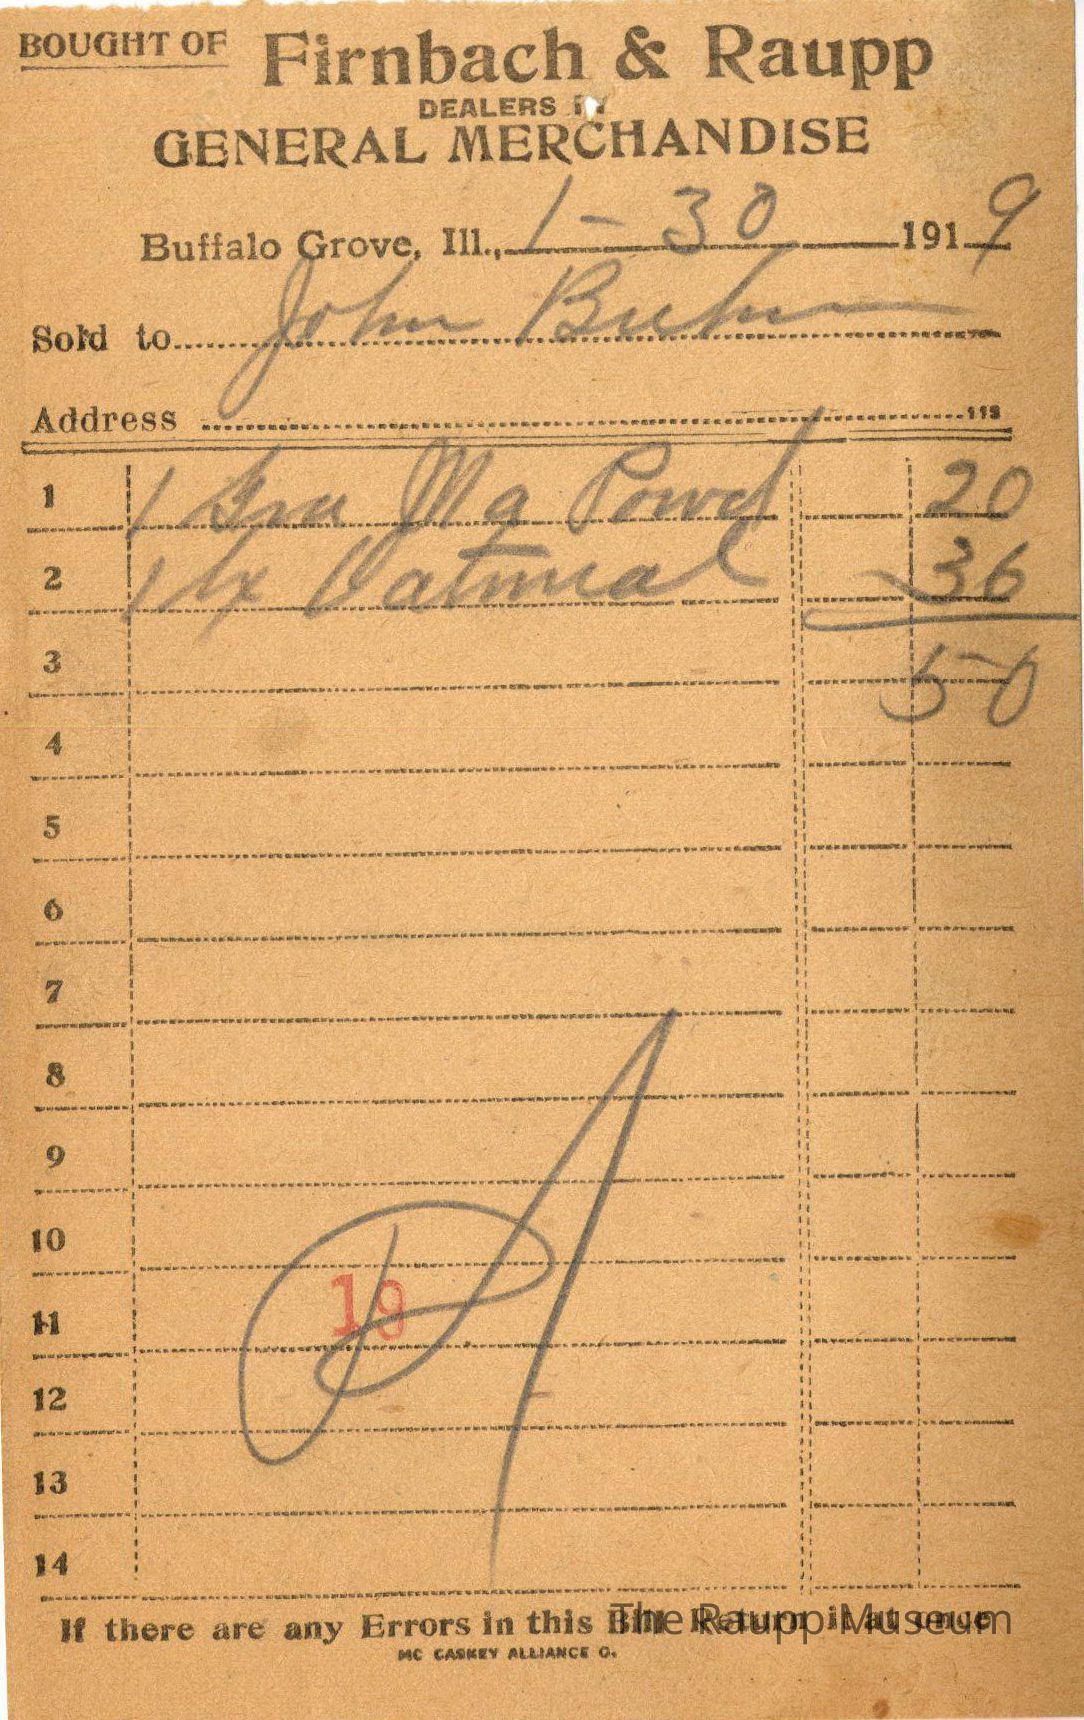 BOUGHT OF Firnbach & Raupp
DEALERS IN
GENERAL MERCHANDISE
Buffalo Grove, Ill., 1-30 1919
Sold to John
Address
1 1 Powd 20
2 1 Oatmeal 36
3 50
4
5
6
7
8
9
10
11 19
12
13
14
If there are any Errors in this Bill Return it at once
The Raupp Museum
MC CASKEY ALLIANCE O.